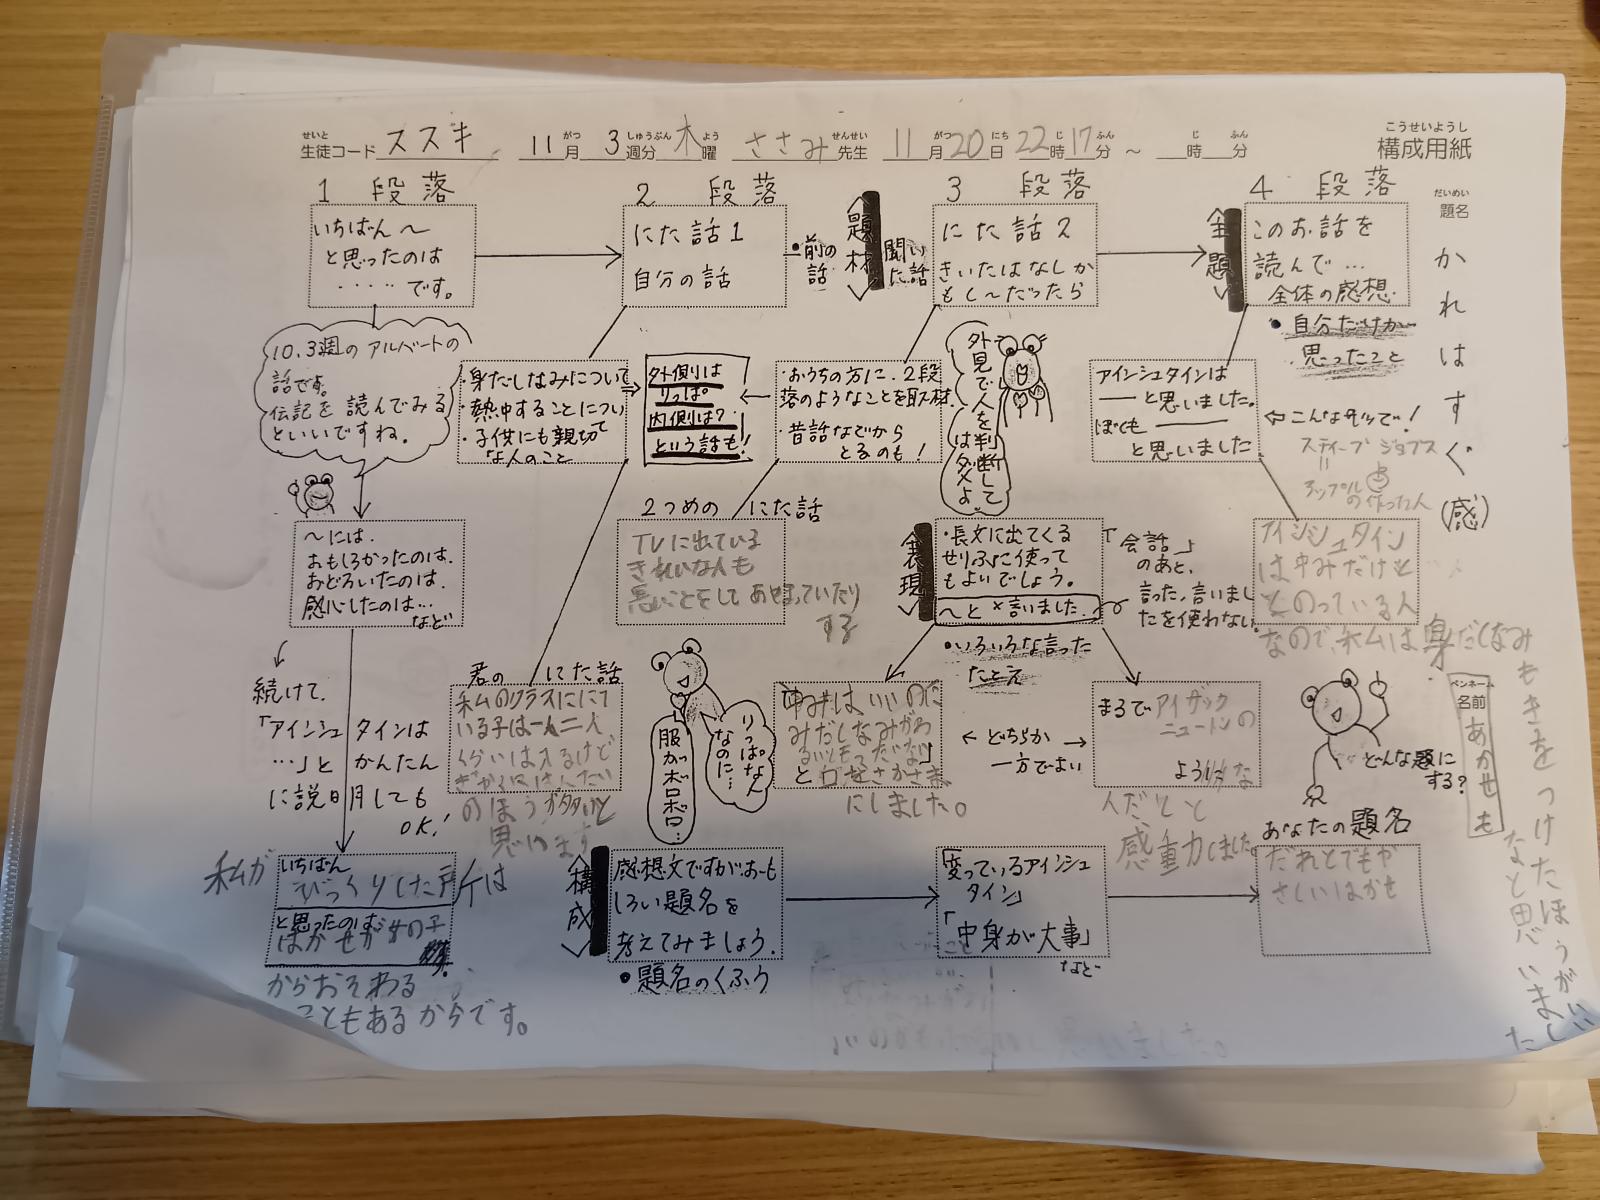 せいと
生徒コード ススキ 11月 3週分 木曜 ささみ先生 11月20日22時17分 ～ 時 分
こうせいようし
構成用紙
だいめい
題名
かれはすぐ(感)
1 段落
いちばん～
と思ったのは
・・・・・です。
10.3週のアルバートの
話です。
伝記を読んでみる
といいですね。
～には.
おもしろかったのは.
おどろいたのは.
感心したのは…
など
続けて.
「アインシュタインは
…」とかんたん
に説明しても
OK!
私が
いちばん
びっくりした所は
と思ったのは
はかせが女の子
からおそわる
こともあるからです。
2 段落
にた話1
自分の話
・前の
話
題材
聞いた話
・身だしなみについて
・熱中することについて
・子供にも親切
な人のこと
外側は
りっぱ。
内側は?
という話も!
君の にた話
私のクラスににて
いる子は一人二人
くらいは入るけど
ぎゃくにはんたい
のほうが多いと
思います
2つめの にた話
TVに出ている
きれいな人も
悪いことをしてあやまっていたり
する
りっぱな人
なのに…
服がボロボロ…
3 段落
にた話2
きいたはなしか
もし～だったら
・おうちの方に、2段
落のようなことを取材.
・昔話などから
とるのも!
外見で人を判断して
はダメよ
表現
・長文に出てくる
せりふに使って
もよいでしょう。
～と×言いました.
「会話」
のあと、
言った,言いまし
たを使わない.
・いろいろな言った
たとえ
「中みはいいのに
みだしなみがわ
るいともったいない」
にしました。
← どちらか →
一方でよい
まるでアイザック
ニュートンの
ような
人だなと
感動しました。
4 段落
全題
このお話を
読んで…
全体の感想.
・自分だけが
思ったこと
アインシュタインは
――と思いました。
ぼくも――
と思いました
⇐こんなカンジで!
スティーブ ジョブズ
॥
アップル
の作った人
アインシュタイン
は中みだけと
とのっている人
なので、私は身だしなみ
もきをつけたほうがいい
なと思いました
どんな題に
する?
ペンネーム
名前
あかせも
構成
感想文ですが、おも
しろい題名を
考えてみましょう.
・題名のくふう
「変っているアインシュ
タイン」
「中身が大事」
など
あなたの題名
だれとでもや
さしいはかせ